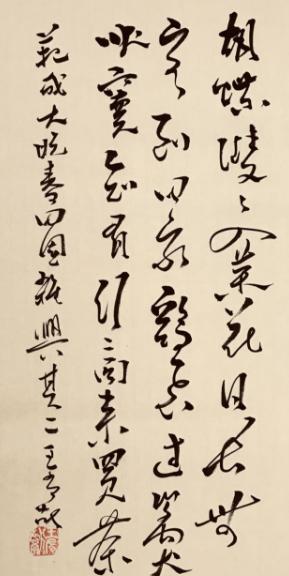 胡蝶雙〻入菜花日長無
客到田家鷄飛過籬犬
吠竇知有行商来買茶
范成大晚春田園雜興其二王